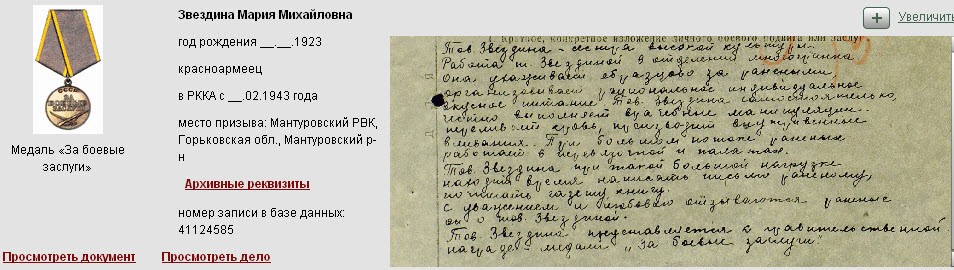 Звездина Мария Михайловна
год рождения __.__.1923
красноармеец
в РККА с __.02.1943 года
место призыва: Мантуровский РВК,
Горьковская обл., Мантуровский р-
н
Архивные реквизиты
номер записи в базе данных:
41124585
СССР
ЗА БОЕВЫЕ ЗАСЛУГИ
Медаль «За боевые
заслуги»
Просмотреть документ
Просмотреть дело
Увеличить
1. Краткое, конкретное изложение личного боевого подвига или заслуг
Тов. Звездина - сестра высокой культуры.
Работа т. Звездиной в отделении многогранна
Она ухаживает образцово за ранеными,
организовывает рациональное индивидуальное
вкусное питание. Тов. Звездина самостоятельно,
чётко выполняет врачебные манипуляции:
переливает кровь, производит внутривенные
вливания. При большом потоке раненых
работает в перевязочной и палатах.
Тов. Звездина при такой большой нагрузке
находит время написать письмо раненому,
почитать газету, книгу.
С уважением и любовью отзываются раненые
о тов. Звездиной.
Тов. Звездина представляется к правительственной
награде - медали "За боевые заслуги"